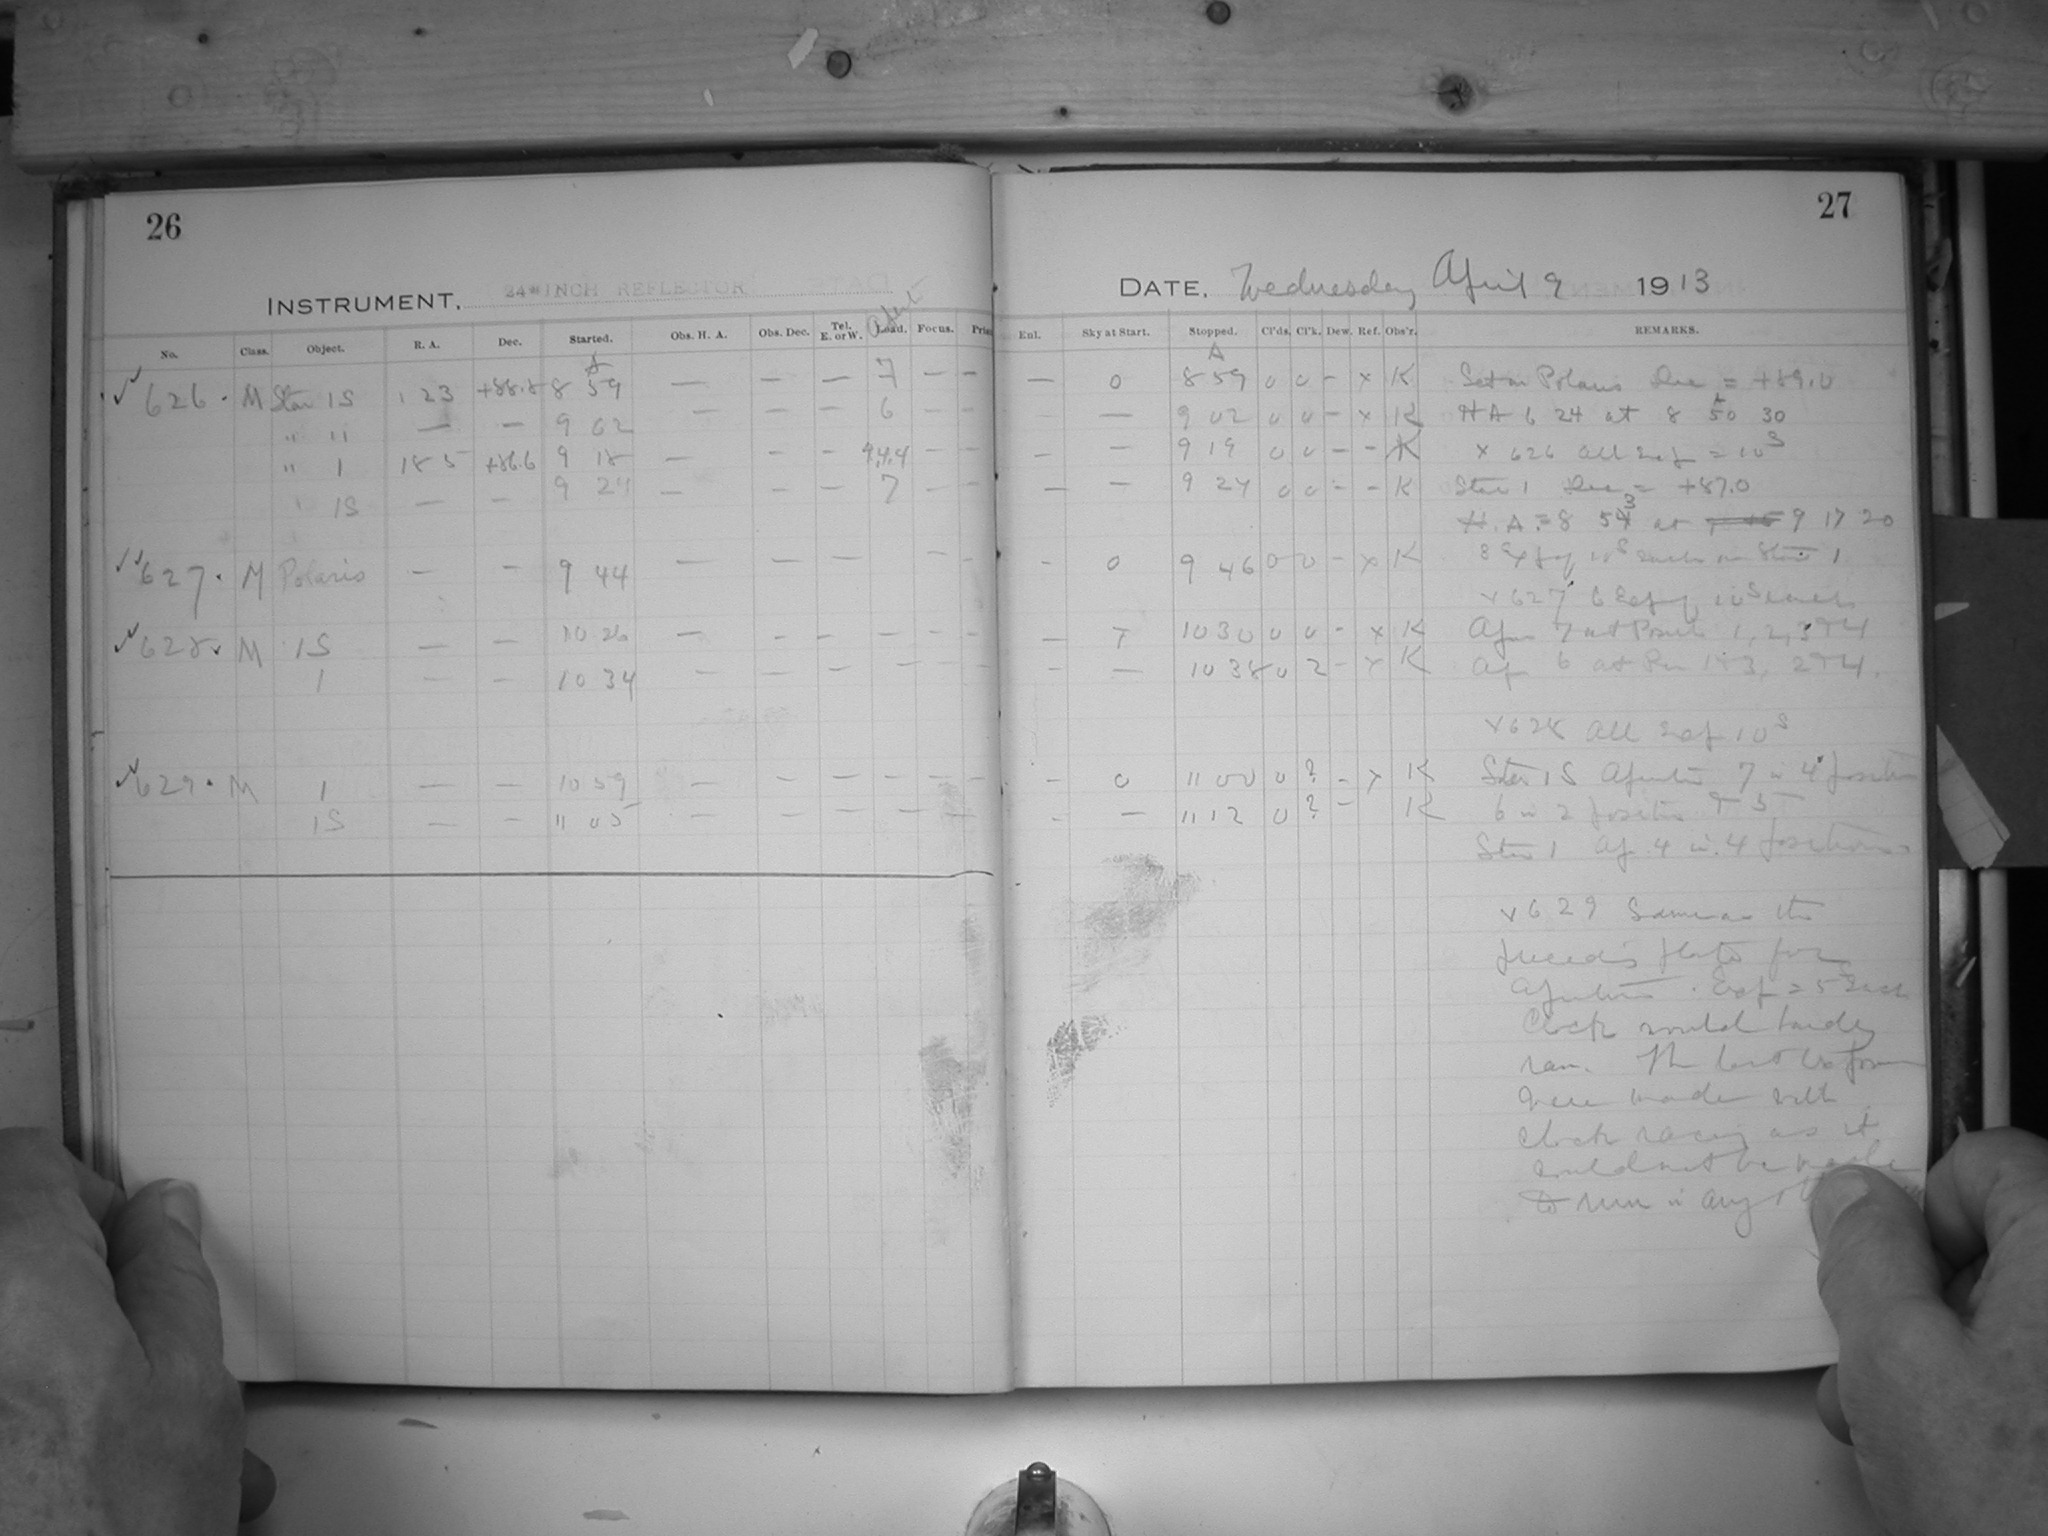 26
INSTRUMENT, 24-INCH REFLECTOR
No. Class. Object. R. A. Dec. Started. Obs. H. A. Obs. Dec. Tel. E. or W. Load. Focus.
626 M Star 1S 1 23 +88.8 8 59 — — — 7 — —
" 11 — — 9 02 — — — 6 — —
" 1 18 5 +86.6 9 18 — — — — —
" 1S — — 9 24 — — — 7 — —
627 M Polaris — — 9 44 — — — — —
628 M 1S — — 10 26 — — — — — —
1 — — 10 34 — — — — — —
629 M 1 — — 10 59 — — — — — —
1S — — 11 05 — — — — —
27
DATE, Wednesday April 9 1913
Enl. Sky at Start. Stopped. Cl'ds. Cl'k. Dew. Ref. Obs'r. REMARKS.
— 0 8 59 0 0 - x K Set on Polaris Dec = +89.0
— 9 02 0 0 - x K HA 6 24 at 8 50 30
- — 9 19 0 0 - - K x 626 all Exp = 10 s
— — 9 24 0 0 - - K Star 1 Dec = +87.0
H.A. = 8 53 at 9 17 20
- 0 9 46 0 0 - x K 8 Exp of 10 s each on Star 1
627 6 Exp of 10 s each
— 7 10 30 0 0 - x K
- — 10 38 0 2 - x K
628 All Exp 10 s
- 0 11 00 0 ? - x K Star 1S 7 in 4 position
- — 11 12 0 ? - K 6 in 2 position
Star 1 Ap. 4 in 4 positions
629 Same as the
Exp = 5 s Each
Clock would hardly
run. The last
were made with
clock racing as it
could not be made
to run in any